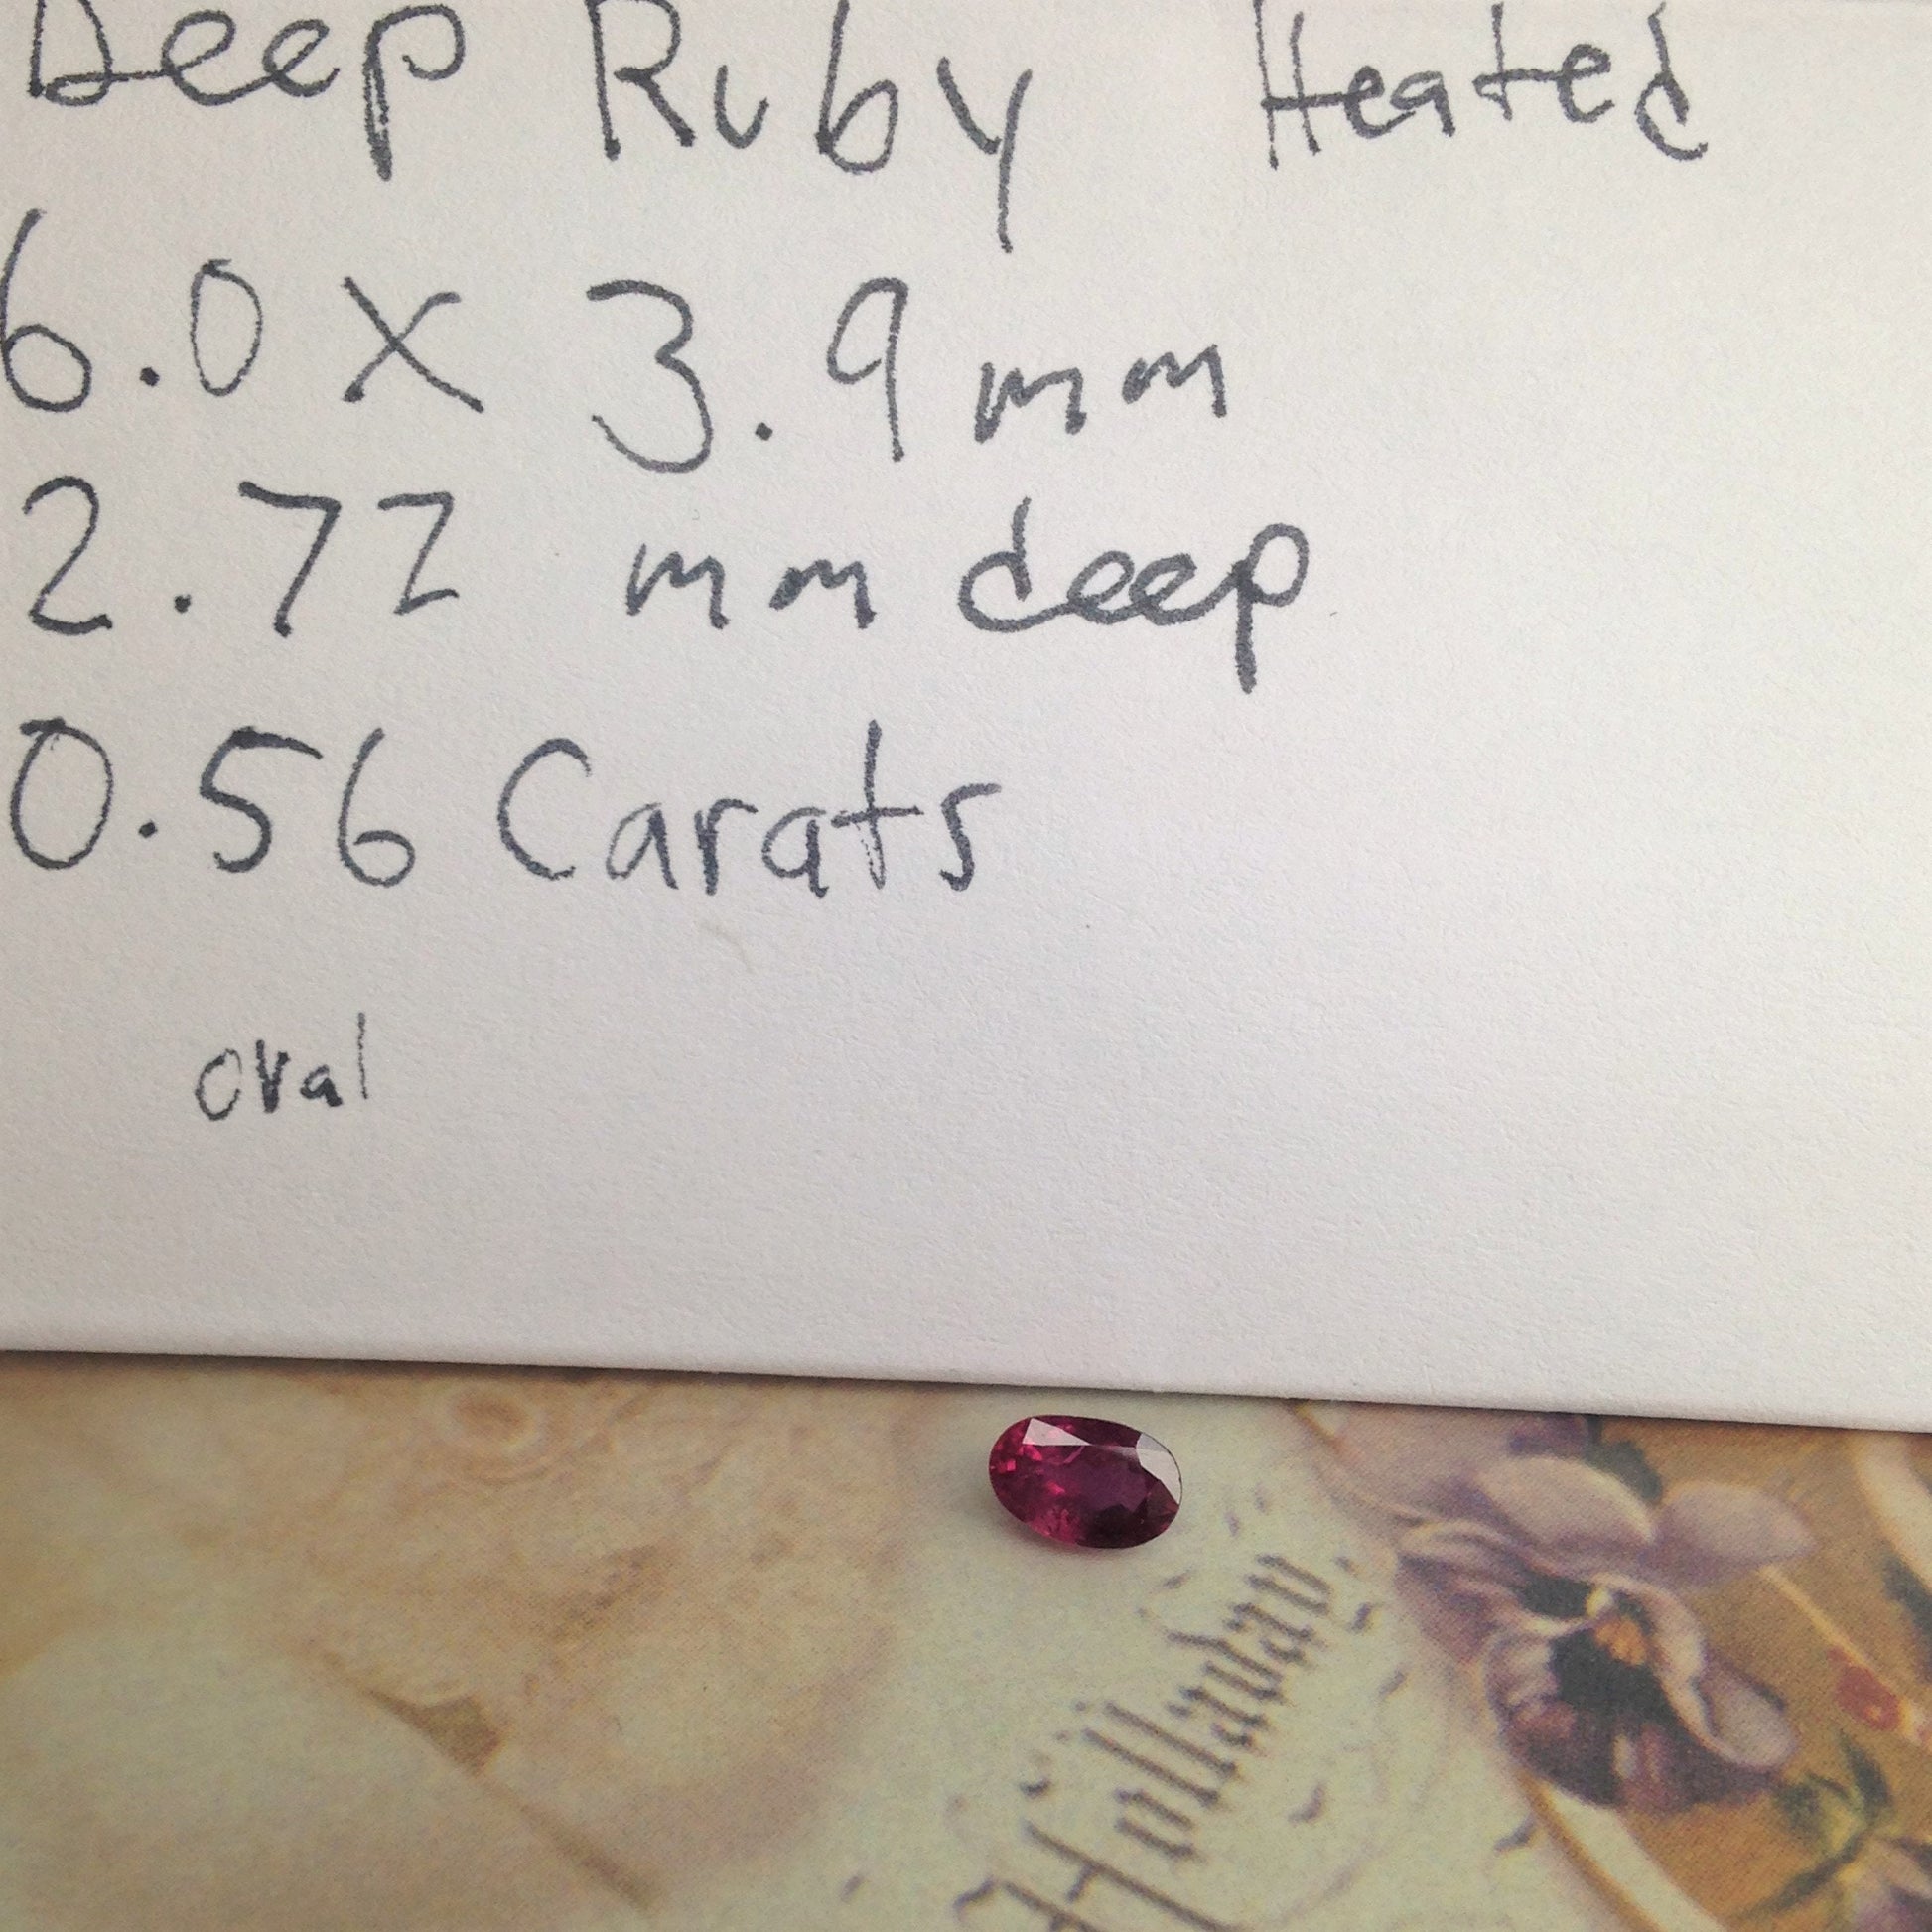 Deep Ruby Heated
6.0 x 3.9 mm
2.72 mm deep
0.56 Carats
oval
Hollaway